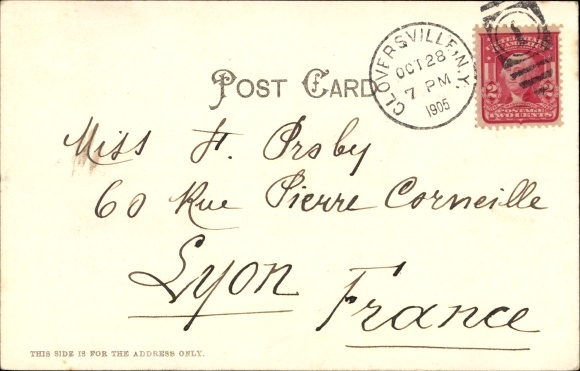 POST CARD
CLOVERSVILLE, N.Y.
OCT 28
7 PM
1905
2 2
POSTAGE
TWO CENTS
Miss F. Orsby
60 Rue Pierre Corneille
Lyon
France
THIS SIDE IS FOR THE ADDRESS ONLY.